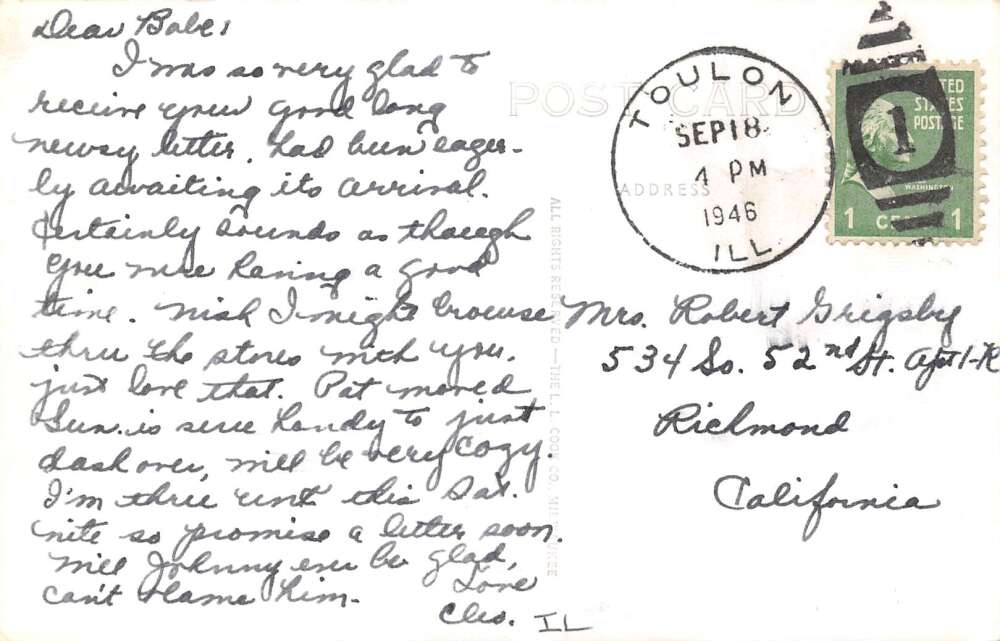 Dear Babe:
I was so very glad to
receive your good long
newsy letter. had been eager-
ly awaiting its arrival.
Certainly sounds as though
you were having a good
time. Wish I might browse
thru the stores with you.
just love that. Pat moved
Sun. is sure handy to just
dash over, will be very cozy.
I'm thru work this Sat.
nite so promise a letter soon.
Will Johnny ever be glad,
can't blame him.
Love
Cleo.
IL
POST CARD
ADDRESS
ALL RIGHTS RESERVED—THE L. L. COOK CO., MILWAUKEE
TOULON
SEP 18
4 PM
1946
ILL.
1
UNITED
STATES
POSTAGE
WASHINGTON
1 CENT 1
Mrs. Robert Grigsby
534 So. 52nd St. Apt 1-K
Richmond
California